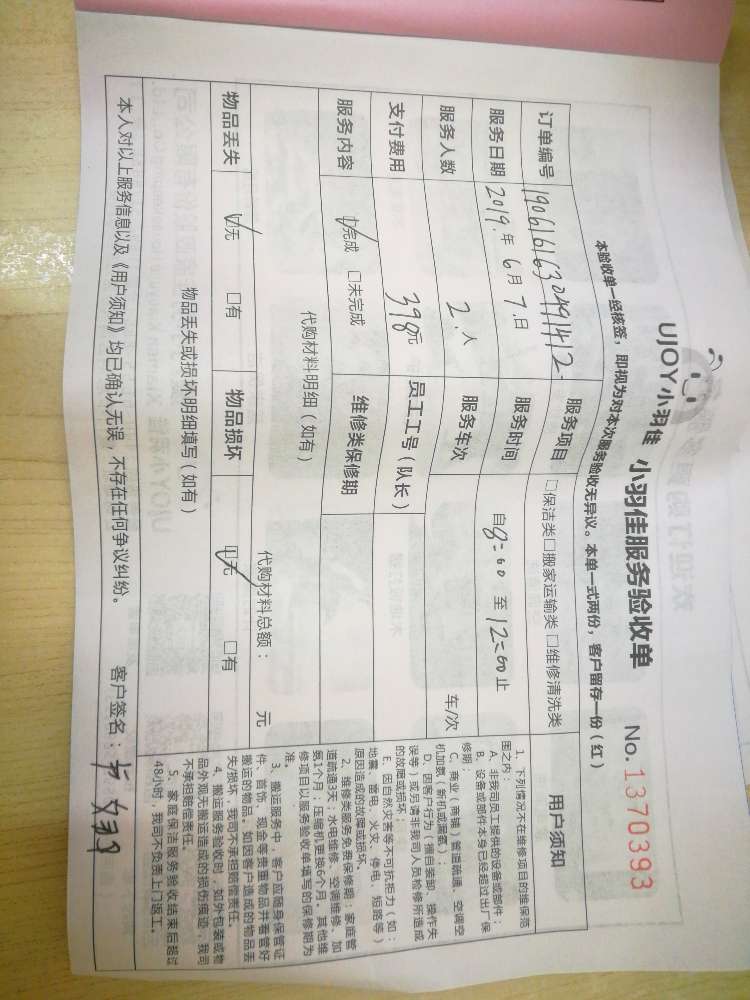 UJOY小羽佳 小羽佳服务验收单 No.1370393
本验收单一经核签，即视为对本次服务验收无异议。本单一式两份，客户留存一份（红）
订单编号 190616163049141412- 服务项目 □保洁类□搬家运输类□维修清洗类
服务日期 2019.年6月7.日 服务时间 自8=00至12=00止
服务人数 2.人 服务车次 车/次
支付费用 398元 员工工号（队长）
服务内容 ☑完成 □未完成 维修类保修期
代购材料明细（如有）
代购材料总额： 元
物品丢失 ☑无 □有 物品损坏 ☑无 □有
物品丢失或损坏明细填写（如有）
用户须知
1、下列情况不在维修项目的维保范
围之内：
A、非我司员工提供的设备或部件；
B、设备或部件本身已经超过出厂保
修期；
C、商业（商铺）管道疏通、空调空
机加氨（新机或漏氨）；
D、因客户行为（擅自装卸、操作失
误等）或另请非我司人员检修所造成
的故障或损坏；
E、因自然灾害等不可抗拒力（如：
地震、雷电、火灾、停电、短路等）
原因造成的故障或损坏。
2、维修类服务免费保修期：家庭管
道疏通3天；水电维修、空调维修、加
氨1个月；压缩机更换6个月。其他维
修项目以服务验收单填写的保修期为
准。
3、搬运服务中，客户应随身保管证
件、首饰、现金等贵重物品并看管好
搬运的物品。如因客户造成的物品丢
失/损坏，我司不承担赔偿责任。
4、搬运服务验收时，如外包装或物
品外观无搬运造成的损伤痕迹，我司
不承担赔偿责任。
5、家庭保洁服务验收结束后超过
48小时，我司不负责上门返工。
本人对以上服务信息以及《用户须知》均已确认无误，不存在任何争议纠纷。 客户签名：